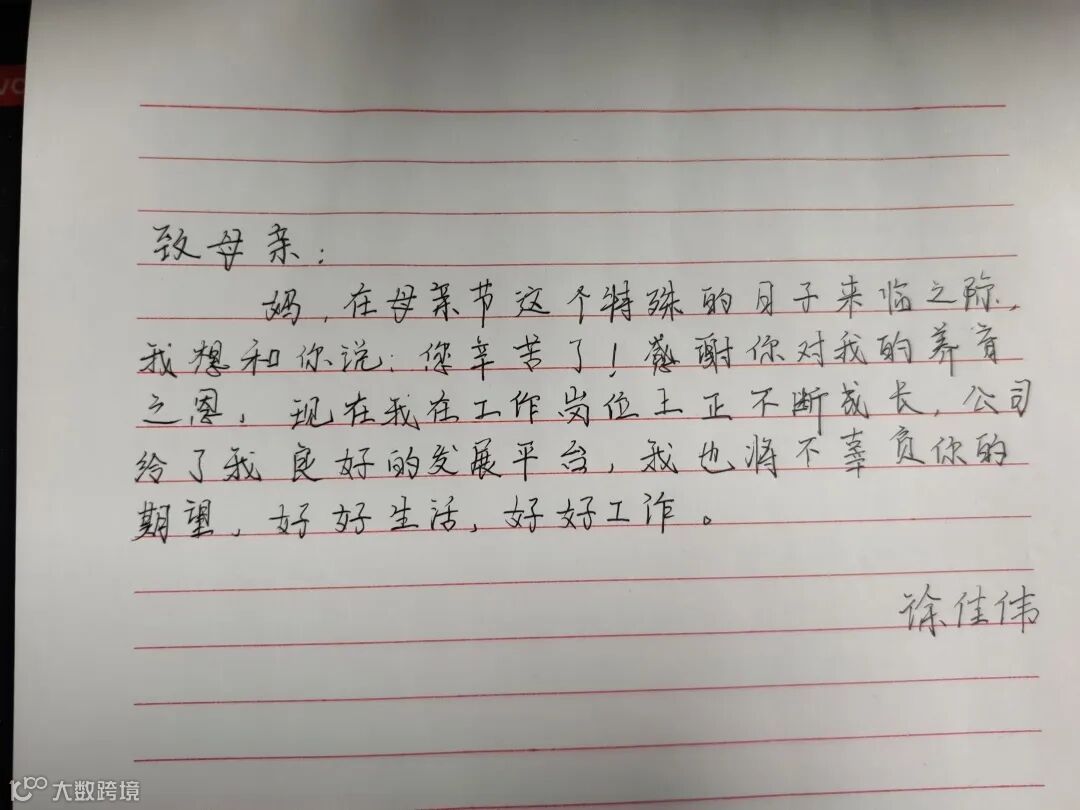 致母亲：
妈，在母亲节这个特殊的日子来临之际，
我想和你说：您辛苦了！感谢你对我的养育
之恩，现在我在工作岗位上正不断成长，公司
给了我良好的发展平台，我也将不辜负你的
期望，好好生活，好好工作。
徐佳伟
大数跨境